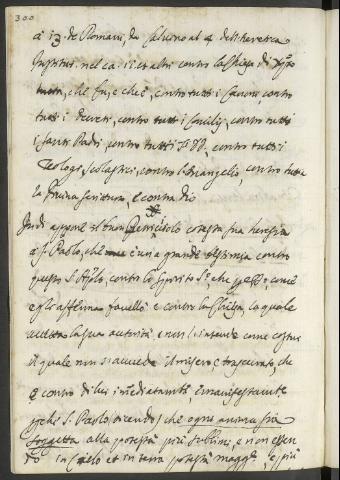 300
à i 13. de Romani, da Caluino al 4 dell'heretica
Institut. nel ca: ii et altri contro la Chiesa di
che fu, e che è, contro tutti i Canoni, contro
tutti i decreti, contro tutti i Concilij, contro tutti
i Santi Padri, contro tutti contro tutti i
Teologi, scolastici, contro l'Euangelio, contro tutta
la Diuina scrittura, e contro Dio
Indi appone il buon cotesta sua heresia
à S. Paolo, che è una grande contro
questo S. contro lo Spirito S.to che come
egli afferma fauellò e contro la Chiesa, la quale
la sua autorità, e non l'intende come costui
il quale non s'accorge il misero, e trascurato, che
è contro di lui immediatamente, e manifestamente
S. Paolo dicendo, che ogni anima sia
soggetta alla potestà più sublimi, e non essen
do in Cielo et in terra potestà magg.re, e più